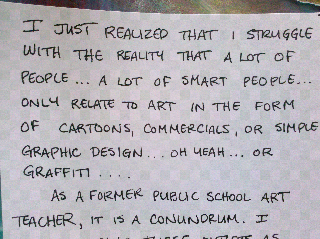 I JUST REALIZED THAT I STRUGGLE
WITH THE REALITY THAT A LOT OF
PEOPLE... A LOT OF SMART PEOPLE...
ONLY RELATE TO ART IN THE FORM
OF CARTOONS, COMMERCIALS, OR SIMPLE
GRAPHIC DESIGN... OH YEAH... OR
GRAFFITI....
AS A FORMER PUBLIC SCHOOL ART
TEACHER, IT IS A CONUNDRUM. I